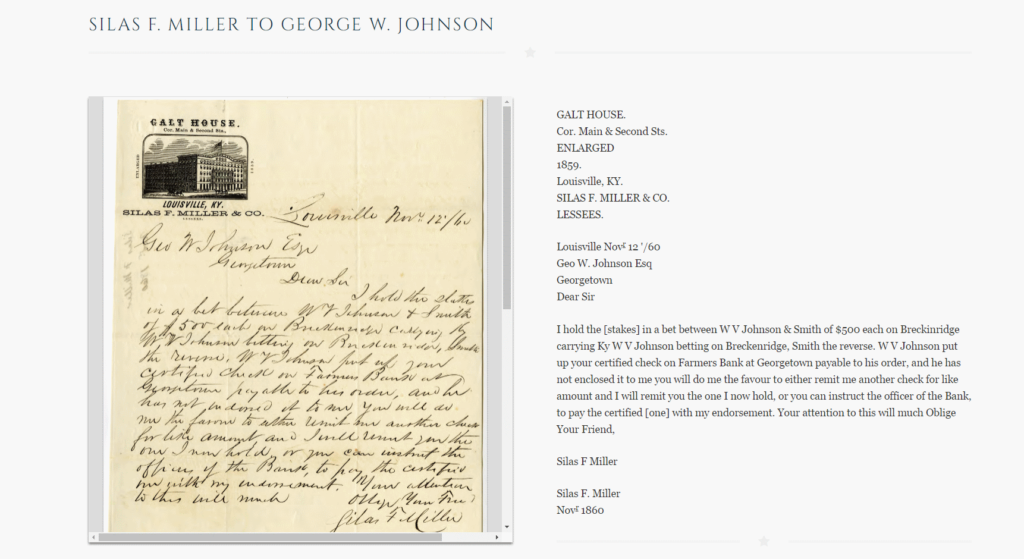 SILAS F. MILLER TO GEORGE W. JOHNSON
GALT HOUSE.
Cor. Main & Second Sts.,
ENLARGED
1859.
LOUISVILLE, KY.
SILAS F. MILLER & CO.
LESSEES.
Louisville Novr 12 '/60
Geo W Johnson Esqr
Georgetown
Dear Sir
I hold the stakes
in a bet between W V Johnson & Smith
of $500 each on Breckenridge carrying Ky
W V Johnson betting on Breckenridge, Smith
the reverse. W V Johnson put up your
certified check on Farmers Bank at
Georgetown payable to his order, and he
has not endorsed it to me You will do
me the favour to either remit me another check
for like amount and I will remit you the
one I now hold, or you can instruct the
officers of the Bank, to pay the certified
one with my endorsement. Your attention
to this will much Oblige Your Friend
Silas F Miller
GALT HOUSE.
Cor. Main & Second Sts.
ENLARGED
1859.
Louisville, KY.
SILAS F. MILLER & CO.
LESSEES.
Louisville Novr 12 '/60
Geo W. Johnson Esq
Georgetown
Dear Sir
I hold the [stakes] in a bet between W V Johnson & Smith of $500 each on Breckinridge
carrying Ky W V Johnson betting on Breckenridge, Smith the reverse. W V Johnson put
up your certified check on Farmers Bank at Georgetown payable to his order, and he has
not enclosed it to me you will do me the favour to either remit me another check for like
amount and I will remit you the one I now hold, or you can instruct the officer of the Bank,
to pay the certified [one] with my endorsement. Your attention to this will much Oblige
Your Friend,
Silas F Miller
Silas F. Miller
Novr 1860